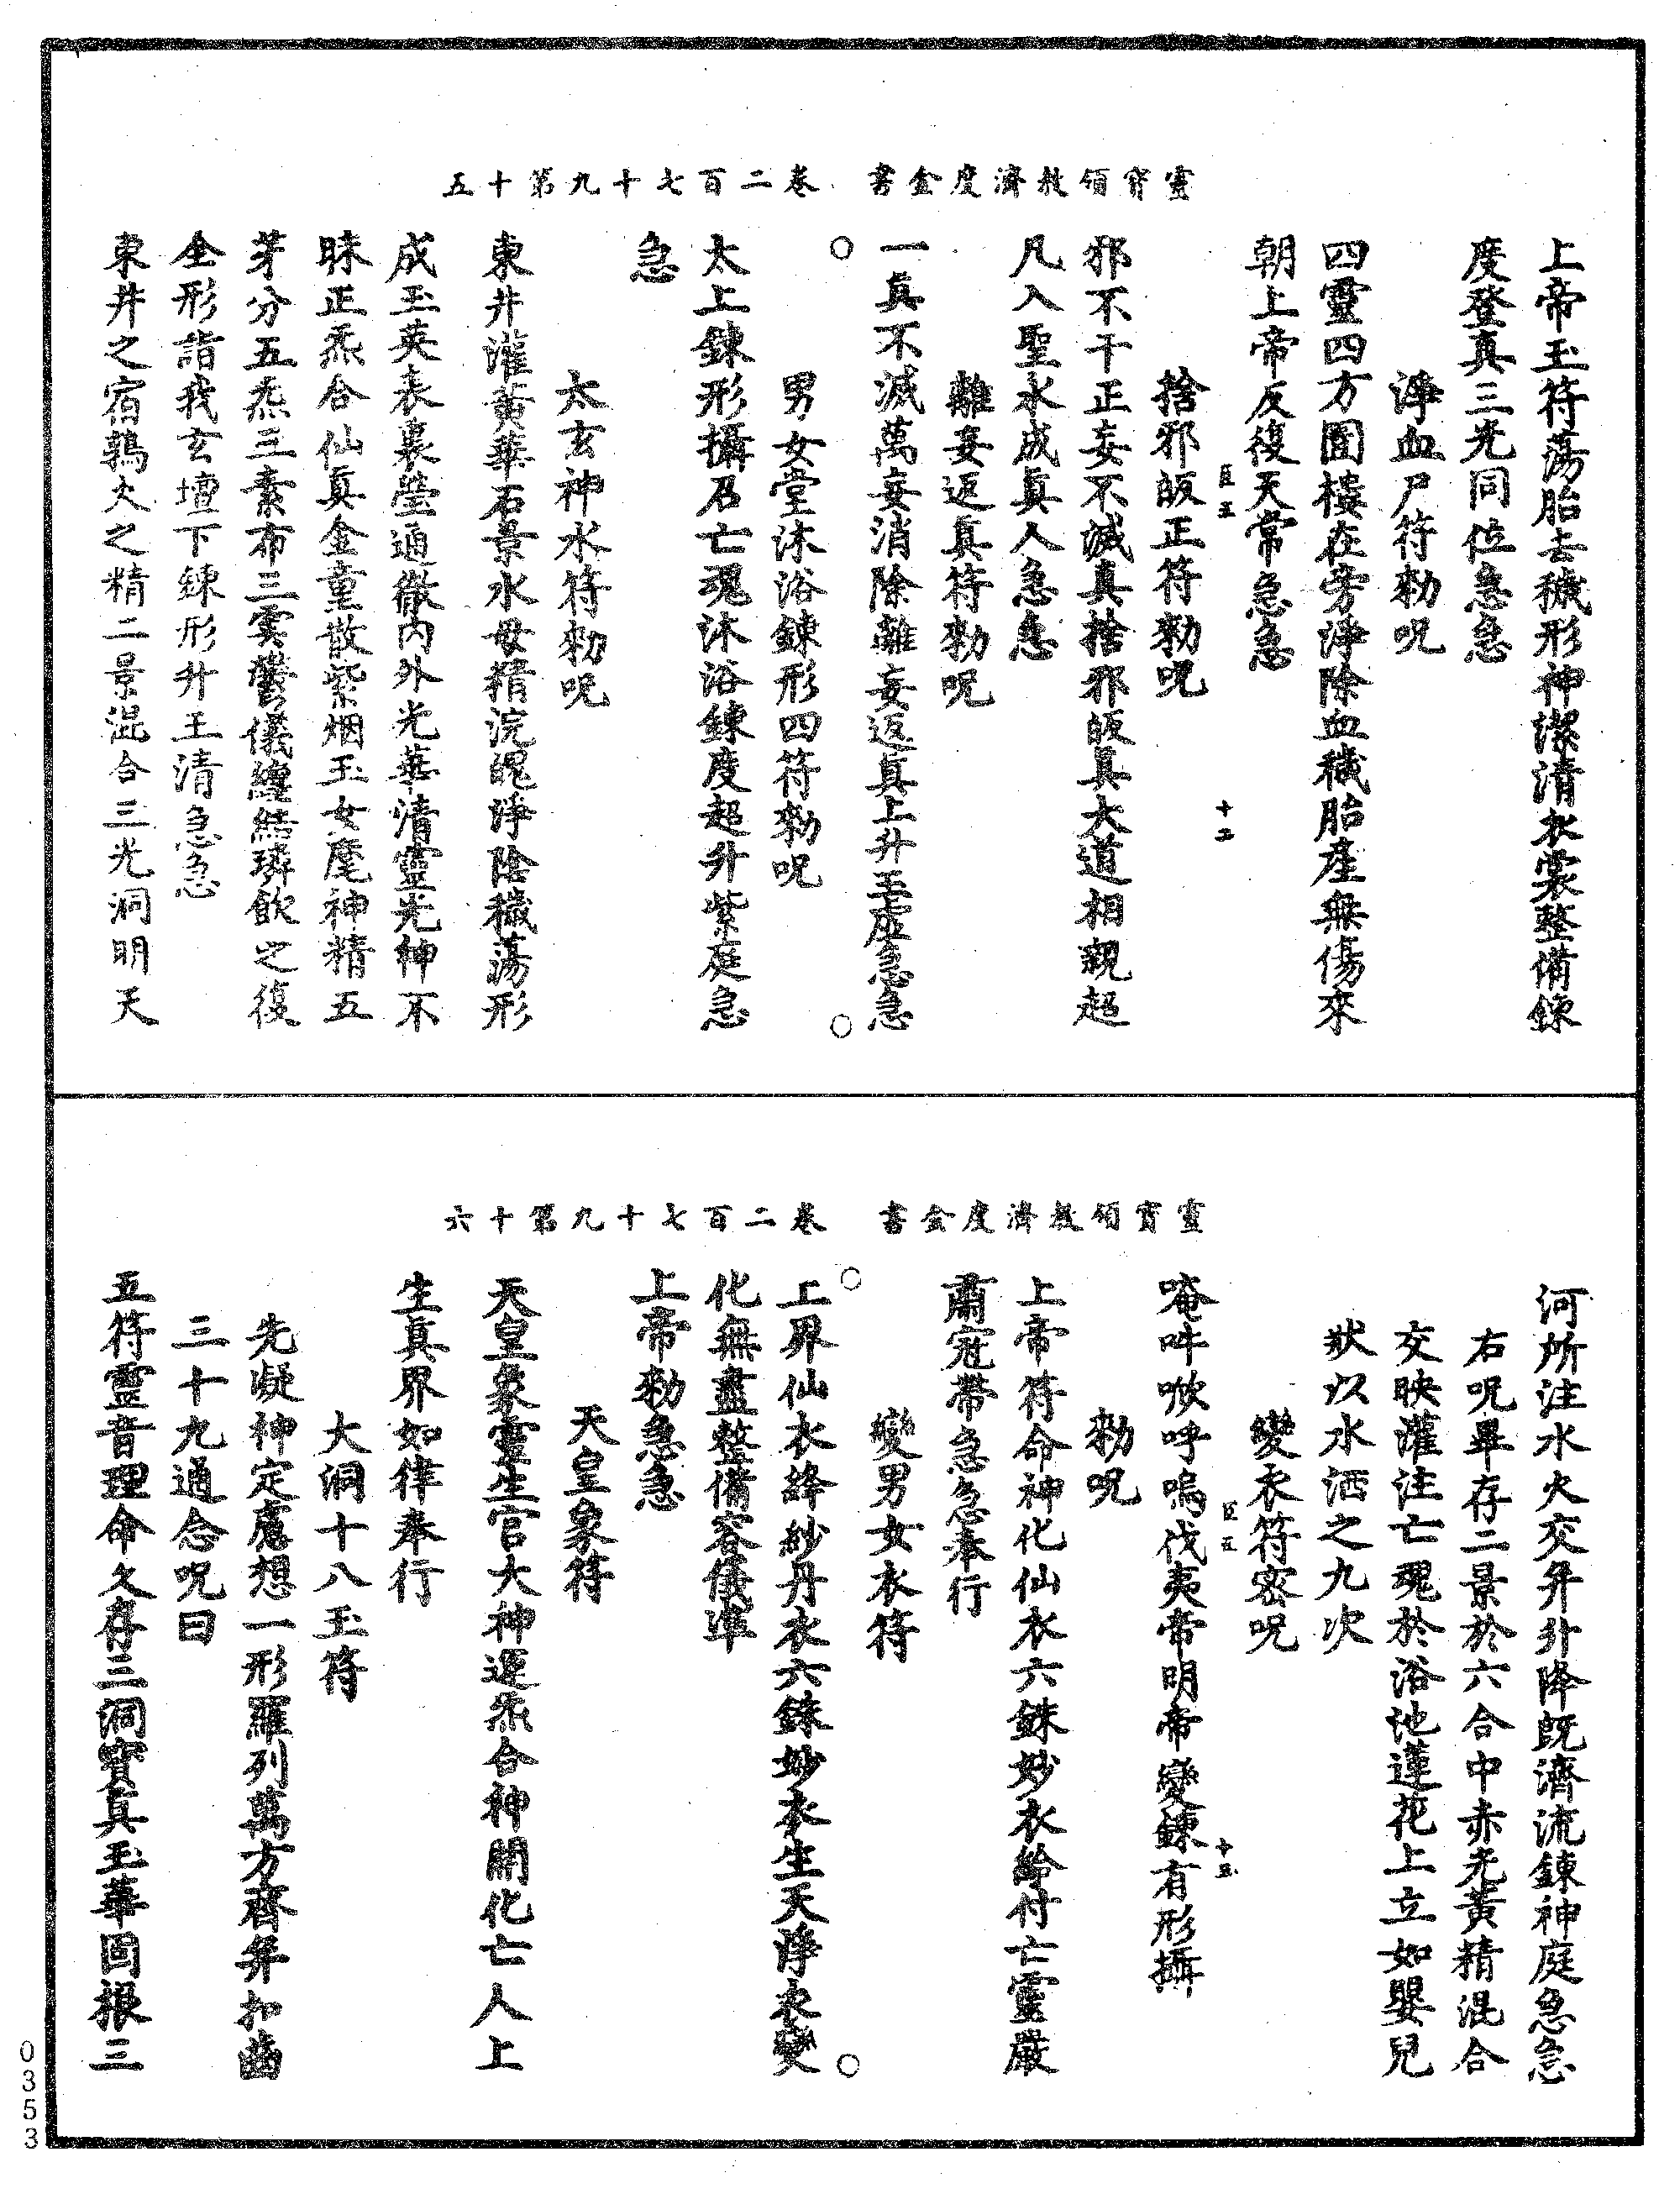 靈寶領教濟度金書　卷二百七十九第十五
上帝玉符蕩胎去穢形神潔清衣裳整備鍊
度登真三光同位急急
淨血尸符勑呪
四靈四方圓樓在旁淨除血穢胎產無傷來
朝上帝反復天常急急
臣五　十二
捨邪皈正符勑呪
邪不干正妄不滅真捨邪皈真大道相親超
凡入聖水成真人急急
離妄返真符勑呪
一真不滅萬妄消除離妄返真上升玉虛急急
○　○
男女堂沐浴鍊形四符勑呪
太上鍊形攝召亡魂沐浴鍊度超升紫庭急
急
太玄神水符勑呪
東井灌黃華石景水母精浣魄淨陰穢蕩形
成玉英表裏瑩通徹內外光華清靈光紳不
昧正炁合仙真金童散紫烟玉女麾神精五
芽分五炁三素布三雲鬱儀纏結璘飲之復
全形詣我玄壇下鍊形升王清急急
東井之宿鶉火之精二景混合三光洞明天
靈寶領教濟度金書　卷二百七十九第十六
河所注水火交并升降既濟流鍊神庭急急
右呪畢存二景於六合中赤光黃精混合
交映灌注亡魂於浴池蓮花上立如嬰兒
狀以水洒之九次
變衣符密呪
臣五　十五
唵吽㗲呼嗚伐夷帝明帝變鍊有形攝
勑呪
上帝符命神化仙衣六銖妙衣給付亡靈嚴
肅冠帶急急奉行
變男女衣符
○　○
上界仙衣絳紗丹衣六銖妙衣生天淨衣變
化無盡整備容儀準
上帝勑急急
天皇象符
天皇象靈生官大神運炁合神開化亡人上
生真界如律奉行
大洞十八玉符
先凝神定慮想一形羅列萬方齊并扣齒
三十九通念呪曰
五符靈音理命久存三洞寶真玉華固根三
0353